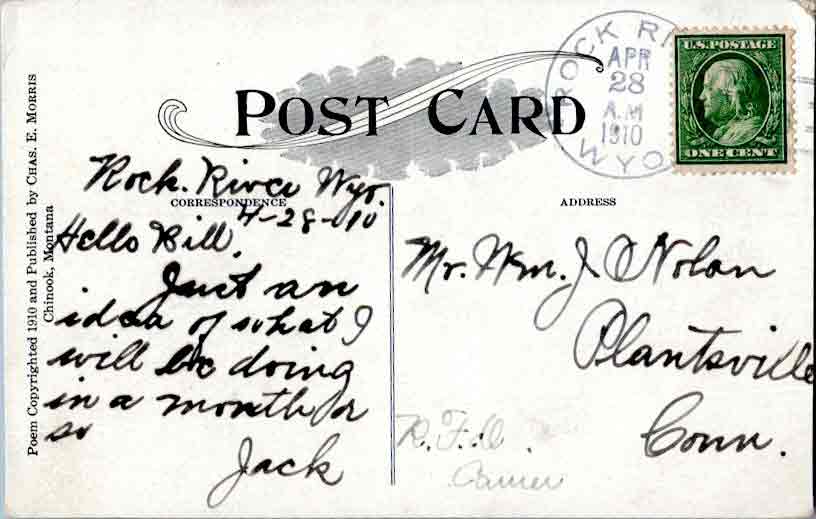 POST CARD
ROCK RI
APR
28
A.M
1910
WYO
U.S. POSTAGE
ONE CENT
Poem Copyrighted 1910 and Published by CHAS. E. MORRIS
Chinook, Montana
CORRESPONDENCE
ADDRESS
Rock. River Wyo.
4-28-10
Hello Bill,
Just an
idea of what I
will be doing
in a month or
so
Jack
Mr. Wm. J Nolan
Plantsville
Conn.
R.F.D.
Carrier